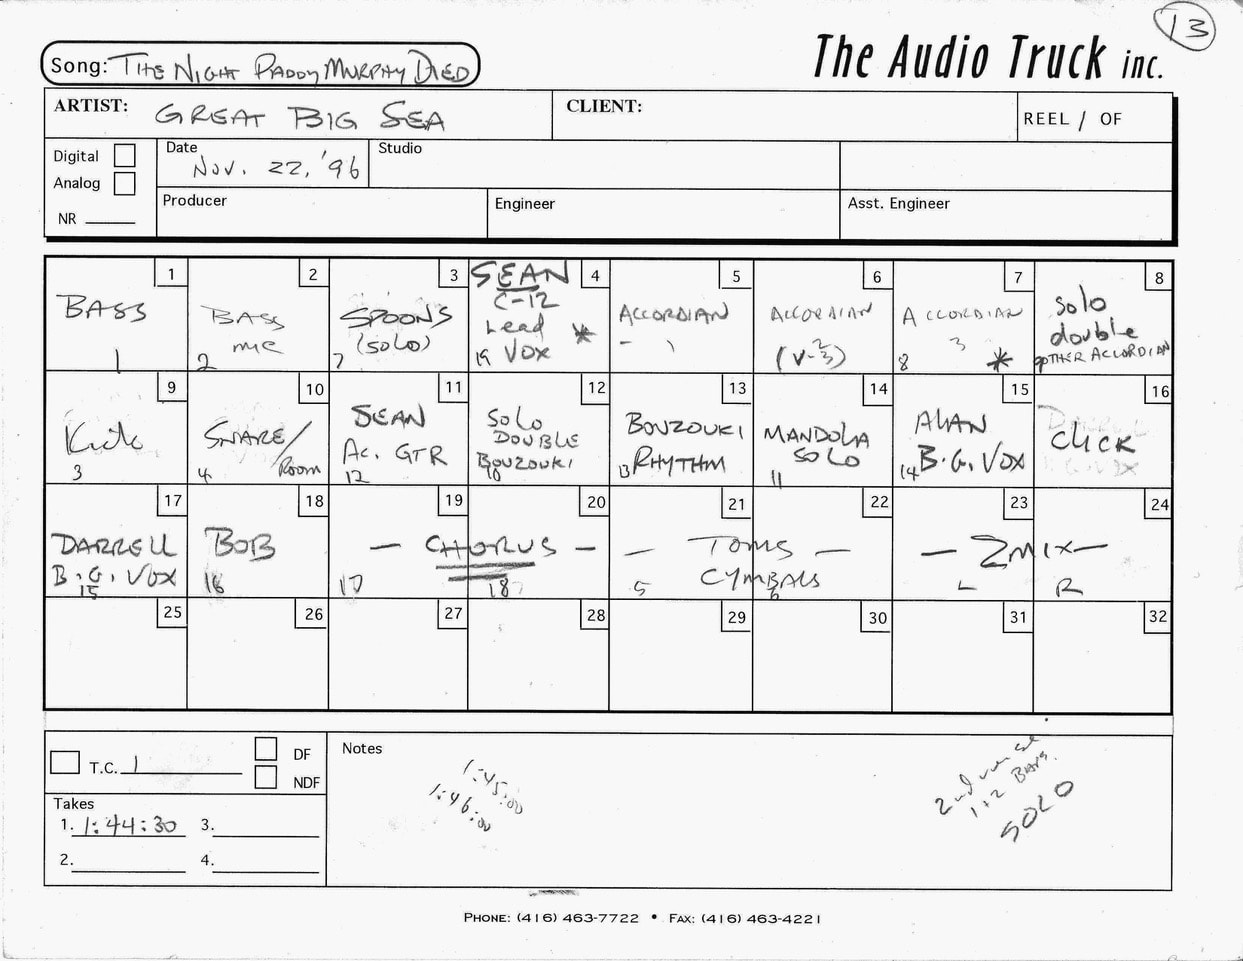 13
Song: THE NIGHT PADDY MURPHY DIED
The Audio Truck inc.
ARTIST: GREAT BIG SEA
CLIENT:
REEL / OF
Digital
Analog
NR
Date
Nov. 22, '96
Studio
Producer
Engineer
Asst. Engineer
1
BASS
1
2
BASS
mic
2
3
SPOONS
(SOLO)
7
4
SEAN
C-12
Lead
VOX *
19
5
ACCORDIAN
- 1
6
ACCORDIAN
(V-2/3)
7
ACCORDIAN
3
8 *
8
Solo
double
OTHER ACCORDIAN
9
9
Kick
3
10
SNARE/
ROOM
4
11
SEAN
AC. GTR
12
12
SOLO
DOUBLE
BOUZOUKI
10
13
BOUZOUKI
RHYTHM
13
14
MANDOLA
SOLO
11
15
ALAN
B.G. VOX
14
16
CLICK
17
DARRELL
B.G. VOX
15
18
BOB
16
19
20
- CHORUS -
17
18
21
22
- TOMS -
CYMBALS
5
6
23
24
- 2MIX -
L
R
25
26
27
28
29
30
31
32
T.C. 1
DF
NDF
Takes
1. 1:44:30
3.
2.
4.
Notes
1:45:00
1:46:00
2nd verse
1+2 Bars.
SOLO
PHONE: (416) 463-7722 • FAX: (416) 463-4221